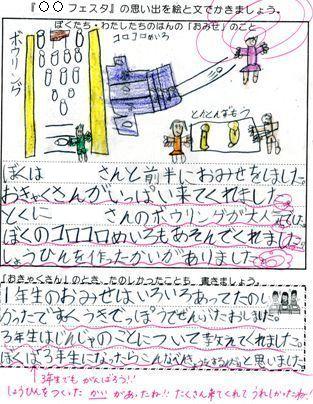 『○○フェスタ』の思い出を絵と文でかきましょう。
ぼくたち・わたしたちのはんの「おみせ」のこと
ボウリング
コロコロめいろ
とんとんずもう
ぼくは さんと前半におみせをしました。
おきゃくさんがいっぱい来てくれました
とくに さんのボウリングが大人 でした。
ぼくのコロコロめいろもあそんでくれました。
しょうひんを作ったかいがありました
「おきゃくさん」のとき、たのしかったことも 書きましょう。
1年生のおみせはいろいろあってたのし
かったです くうきでっぽうでぜんぶたおしました。
3年生はじんじゃのことについて教えてくれました。
ぼくは3年生になったらこんな べんきょうをするんだと思いました。
↑3年生でも がんばろう!!
しょうひんをつくった かいがあったね!! たくさん来てくれて うれしかったね!